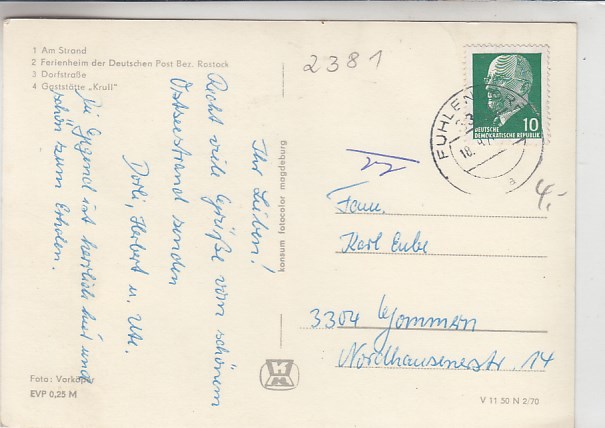 1 Am Strand
2 Ferienheim der Deutschen Post Bez. Rostock
3 Dorfstraße
4 Gaststätte „Krull“
2381
Ihr Lieben!
Recht viele Grüße vom schönem
Ostseestrand senden
Dorli, Herbert u. Ute.
Die Gegend ist herrlich hier und
schön zum Erholen.
konsum fotocolor magdeburg
FUHLEN
18.
a
10
DEUTSCHE
DEMOKRATISCHE REPUBLIK
4,-
Fam.
Karl Eube
3304 Gommern
Nordhausenerstr. 14
Foto:
EVP 0,25 M
V 11 50 N 2/70